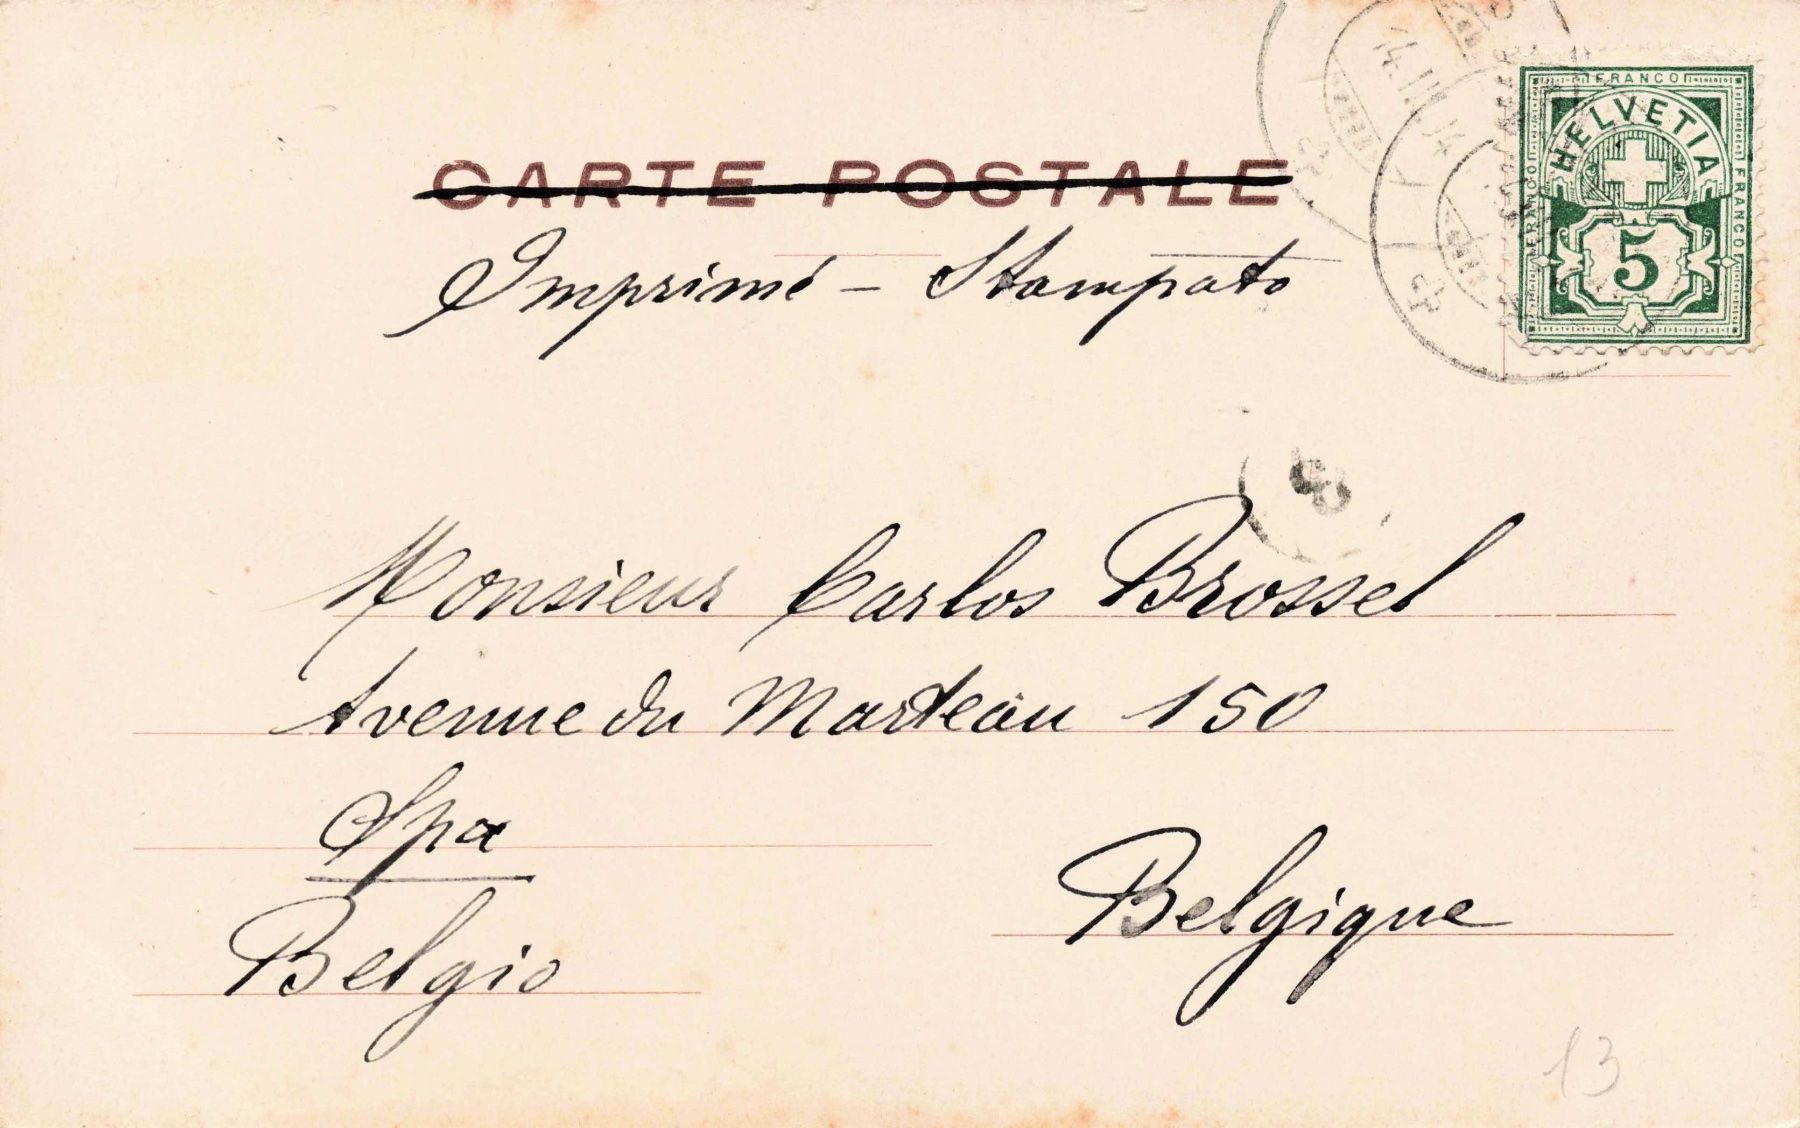 CARTE POSTALE
Imprimé – Stampato
FRANCO
HELVETIA
FRANCO
FRANCO
5
14. II
Monsieur Carlos Brossel
Avenue du Marteau 150
Spa
Belgio
Belgique
13